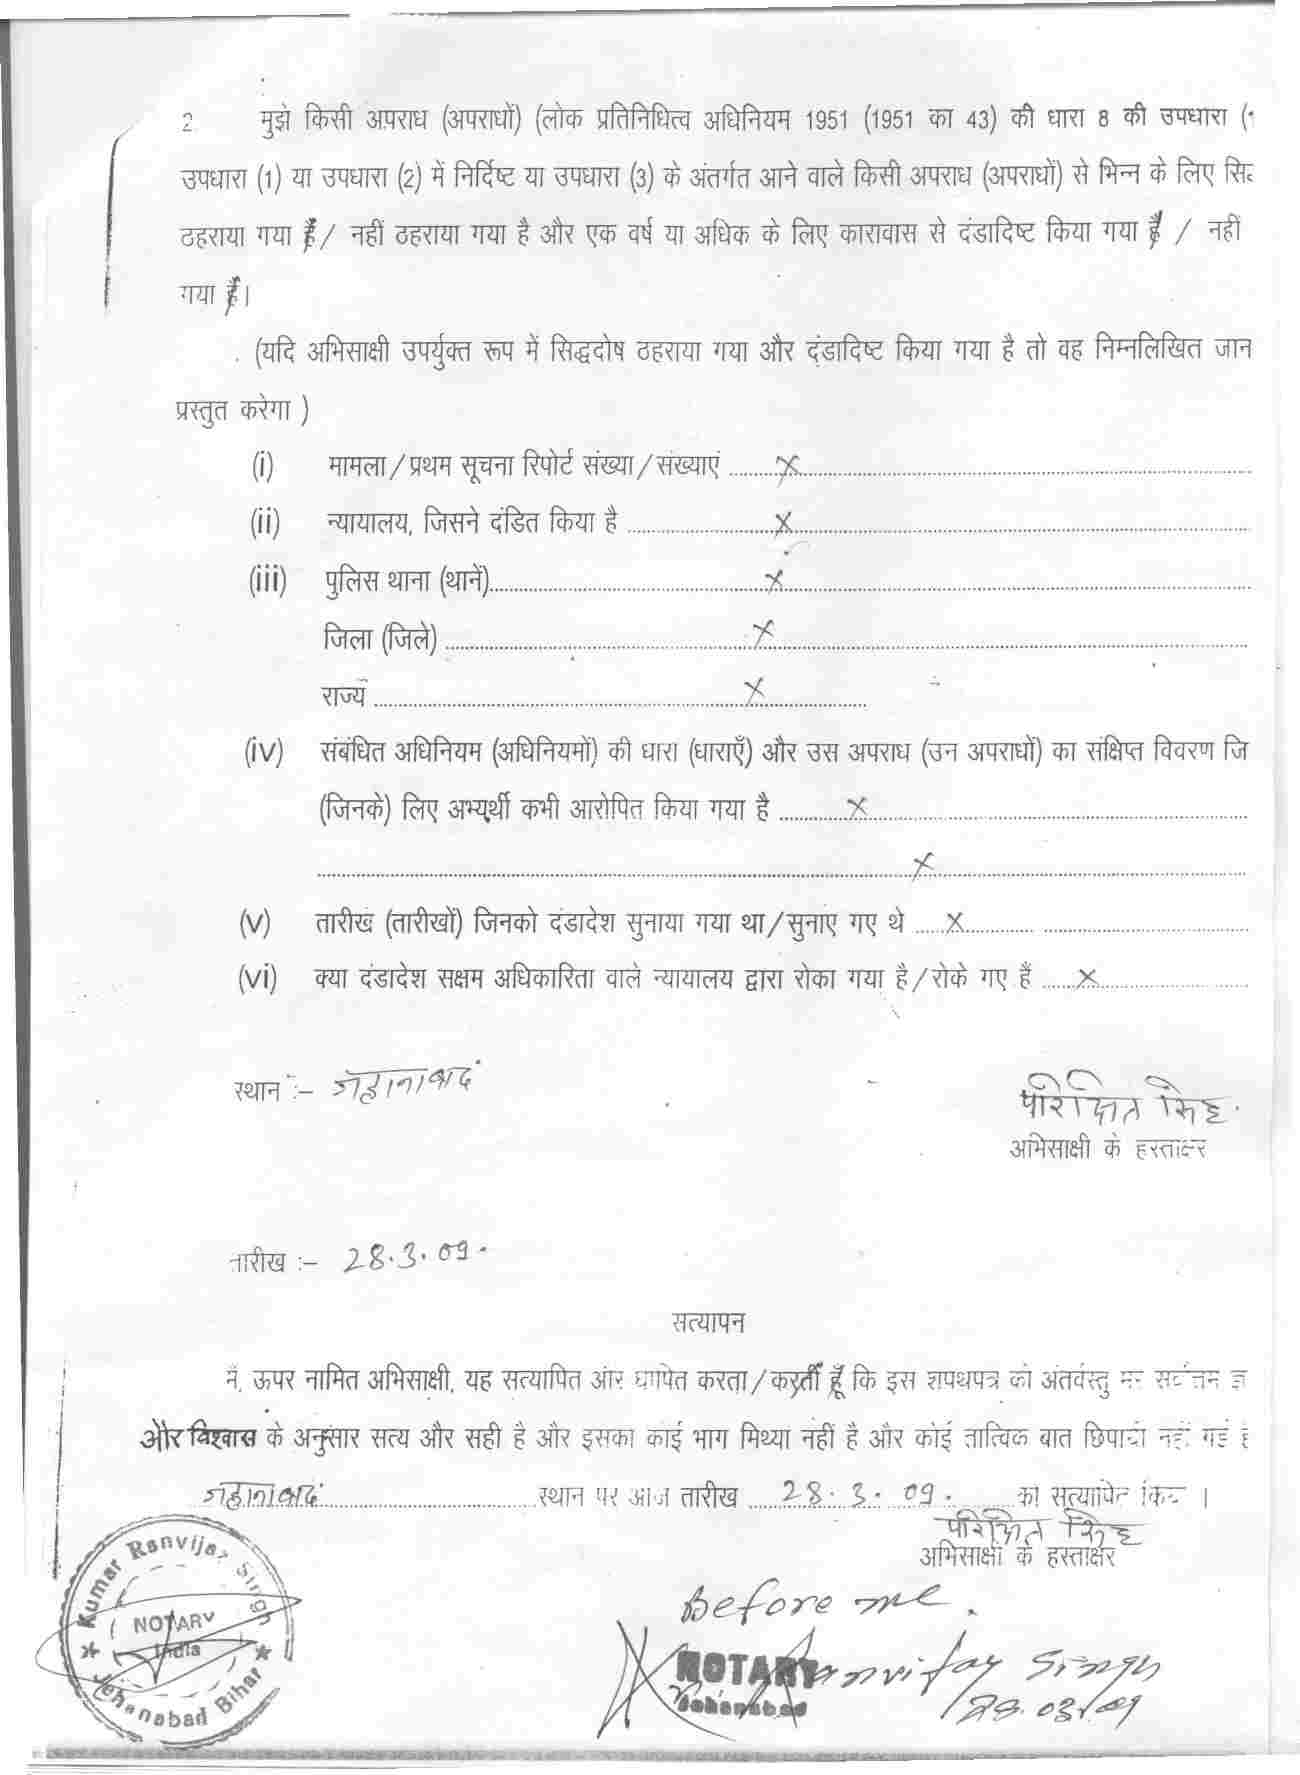 2. मुझे किसी अपराध (अपराधों) (लोक प्रतिनिधित्व अधिनियम 1951 (1951 का 43) की धारा 8 की उपधारा (1
उपधारा (1) या उपधारा (2) में निर्दिष्ट या उपधारा (3) के अंतर्गत आने वाले किसी अपराध (अपराधों) से भिन्न के लिए सिद्
ठहराया गया है / नहीं ठहराया गया है और एक वर्ष या अधिक के लिए कारावास से दंडादिष्ट किया गया है / नहीं
गया है।
(यदि अभिसाक्षी उपर्युक्त रूप में सिद्धदोष ठहराया गया और दंडादिष्ट किया गया है तो वह निम्नलिखित जान
प्रस्तुत करेगा )
(i) मामला/प्रथम सूचना रिपोर्ट संख्या/संख्याएं ........ X ........
(ii) न्यायालय, जिसने दंडित किया है ........ X ........
(iii) पुलिस थाना (थानें)........ X ........
जिला (जिले) ........ X ........
राज्य ........ X ........
(iv) संबंधित अधिनियम (अधिनियमों) की धारा (धाराएँ) और उस अपराध (उन अपराधों) का संक्षिप्त विवरण जि
(जिनके) लिए अभ्यर्थी कभी आरोपित किया गया है ........ X ........
........ X ........
(v) तारीख (तारीखों) जिनको दंडादेश सुनाया गया था/सुनाए गए थे ..... X ........
(vi) क्या दंडादेश सक्षम अधिकारिता वाले न्यायालय द्वारा रोका गया है/रोके गए हैं ..... X ........
स्थान :- जहानाबाद
परिक्षित सिंह
अभिसाक्षी के हस्ताक्षर
तारीख :- 28.3.09.
सत्यापन
मैं, ऊपर नामित अभिसाक्षी, यह सत्यापित और घोषित करता/करती हूँ कि इस शपथपत्र की अंतर्वस्तु मेरे सर्वोत्तम ज्ञ
और विश्वास के अनुसार सत्य और सही है और इसका कोई भाग मिथ्या नहीं है और कोई तात्विक बात छिपायी नहीं गई है
जहानाबाद ........ स्थान पर आज तारीख ..... 28.3.09. ..... को सत्यापित किया ।
परिक्षित सिंह
अभिसाक्षी के हस्ताक्षर
Before me.
NOTARY Ranvijay Singh
Jehanabad 28.03.09
Kumar Ranvijay Singh
NOTARY
India
Jehanabad Bihar